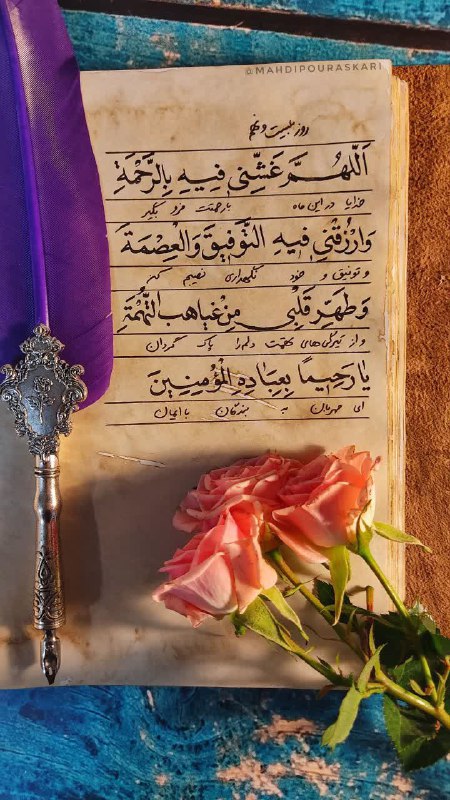 @MAHDIPOURASKARI
روز بیست و نهم
اَللّهُمَّ غَشِّنی فیهِ بِالرَّحْمَةِ
خدایا در این ماه بارحمتت فرو بگیر
وَارْزُقْنی فیهِ التَّوْفیقَ وَالْعِصْمَةَ
و توفیق و خود نگهداری نصیبم کن
وَطَهِّرْ قَلْبی مِنْ غَیاهِبِ التُّهْمَةِ
و از تیرگی‌های تهمت دلم را پاک گردان
یا رَحیمًا بِعِبادِهِ الْمُؤْمِنینَ
ای مهربان به بندگان با ایمان